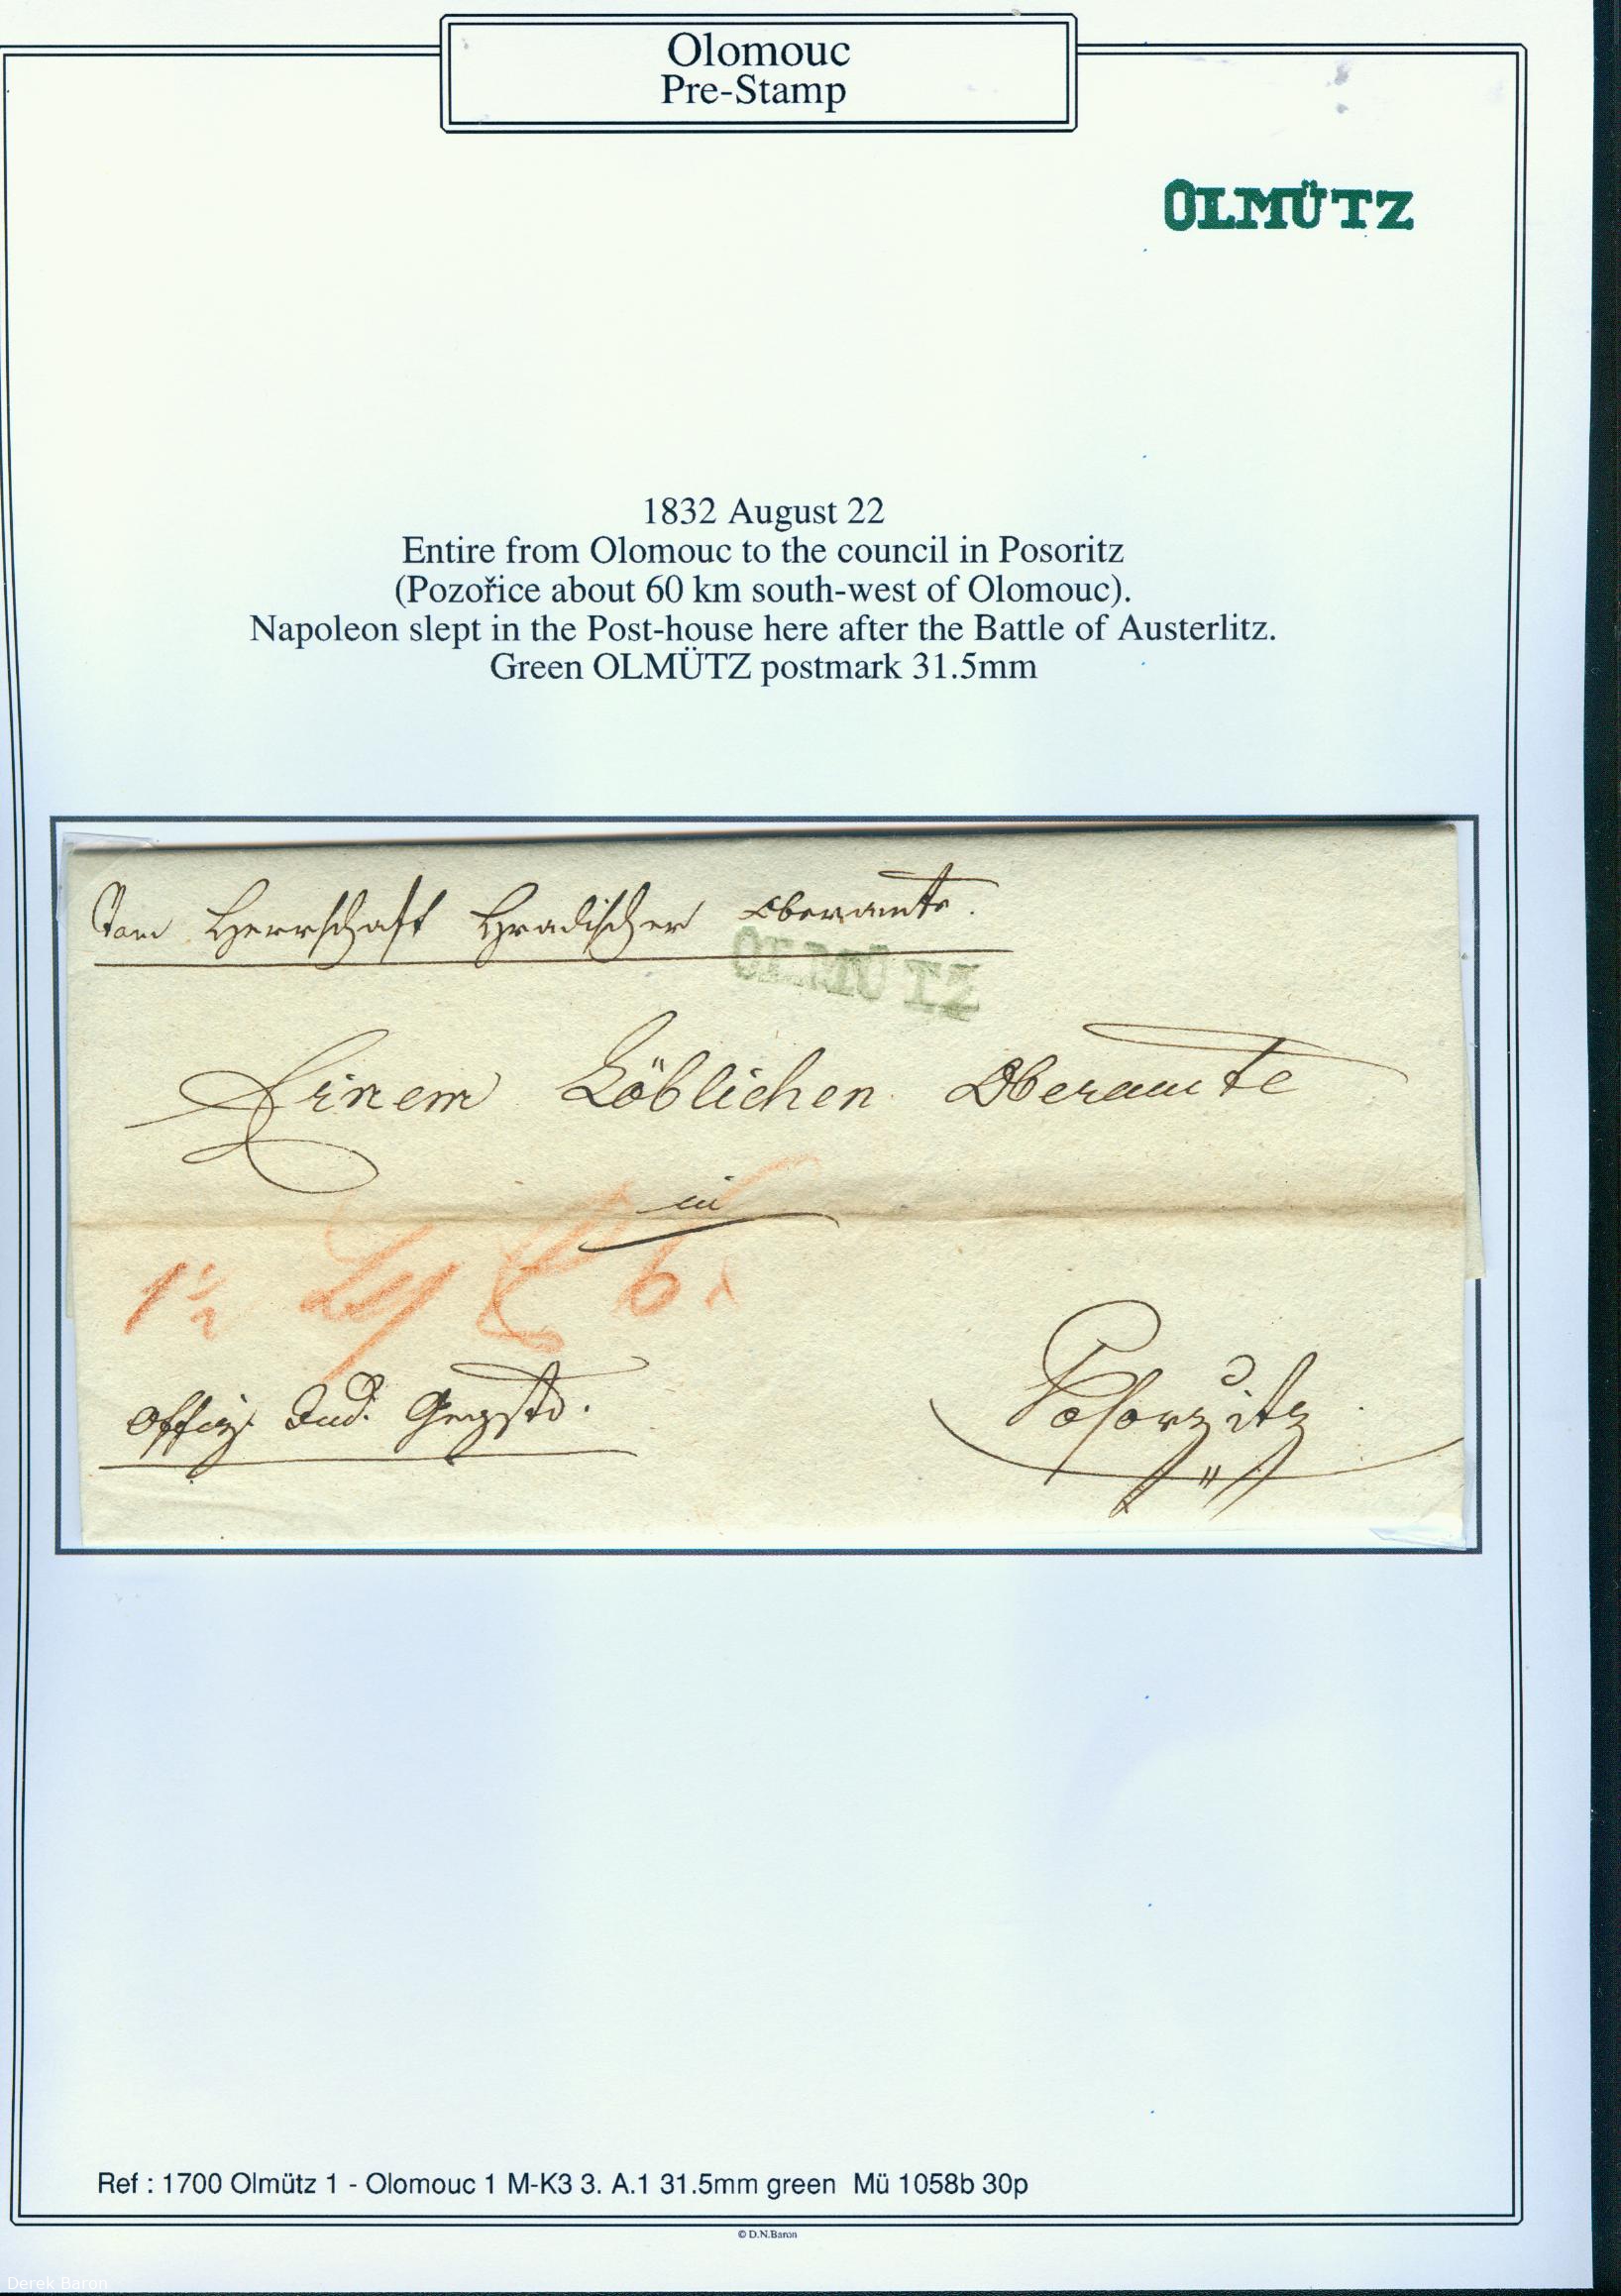 Olomouc
Pre-Stamp
OLMÜTZ
1832 August 22
Entire from Olomouc to the council in Posoritz
(Pozořice about 60 km south-west of Olomouc).
Napoleon slept in the Post-house here after the Battle of Austerlitz.
Green OLMÜTZ postmark 31.5mm
Vom Herrschaft Hradischer Oberamte.
OLMÜTZ
Einem Löblichen Oberamte
in
1½ 6
Posorzitz
Ref : 1700 Olmütz 1 - Olomouc 1 M-K3 3. A.1 31.5mm green Mü 1058b 30p
© D.N.Baron
Derek Baron